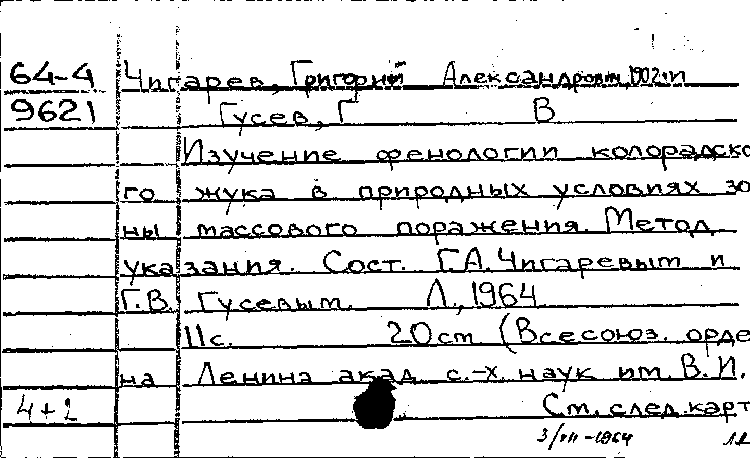 64-4 Чигарев, Григорий Александрович, 1902 и
9621 Гусев, Г В
Изучение фенологии колорадско
го жука в природных условиях зо
ны массового поражения. Метод.
указания. Сост. Г.А. Чигаревым и
Г.В. Гусевым. Л., 1964
11с. 20см (Всесоюз. орде
на Ленина акад. с.-х. наук им. В.И.
4+2 См. след. карт
3/VII-1964